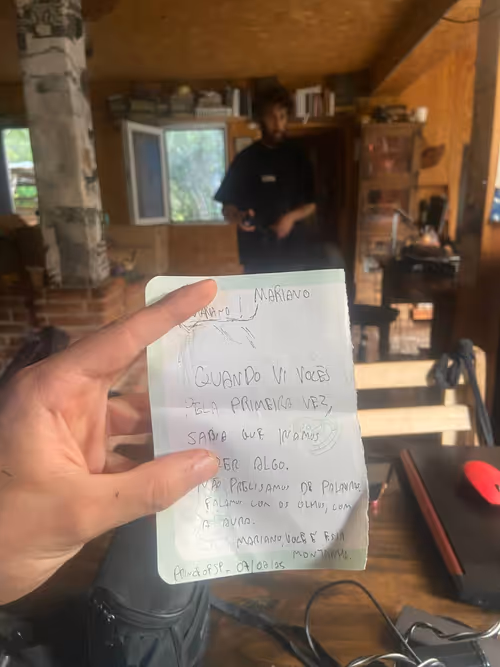 MARIANO
QUANDO VI VOCÊS
PELA PRIMEIRA VEZ,
SABIA QUE IRIAMOS
ALGO.
NÃO PRECISAMOS DE PALAVRAS.
FALAMOS COM OS OLHOS, COM
A AURA.
MARIANO, VOCÊ É ESSA
MONTANHA.